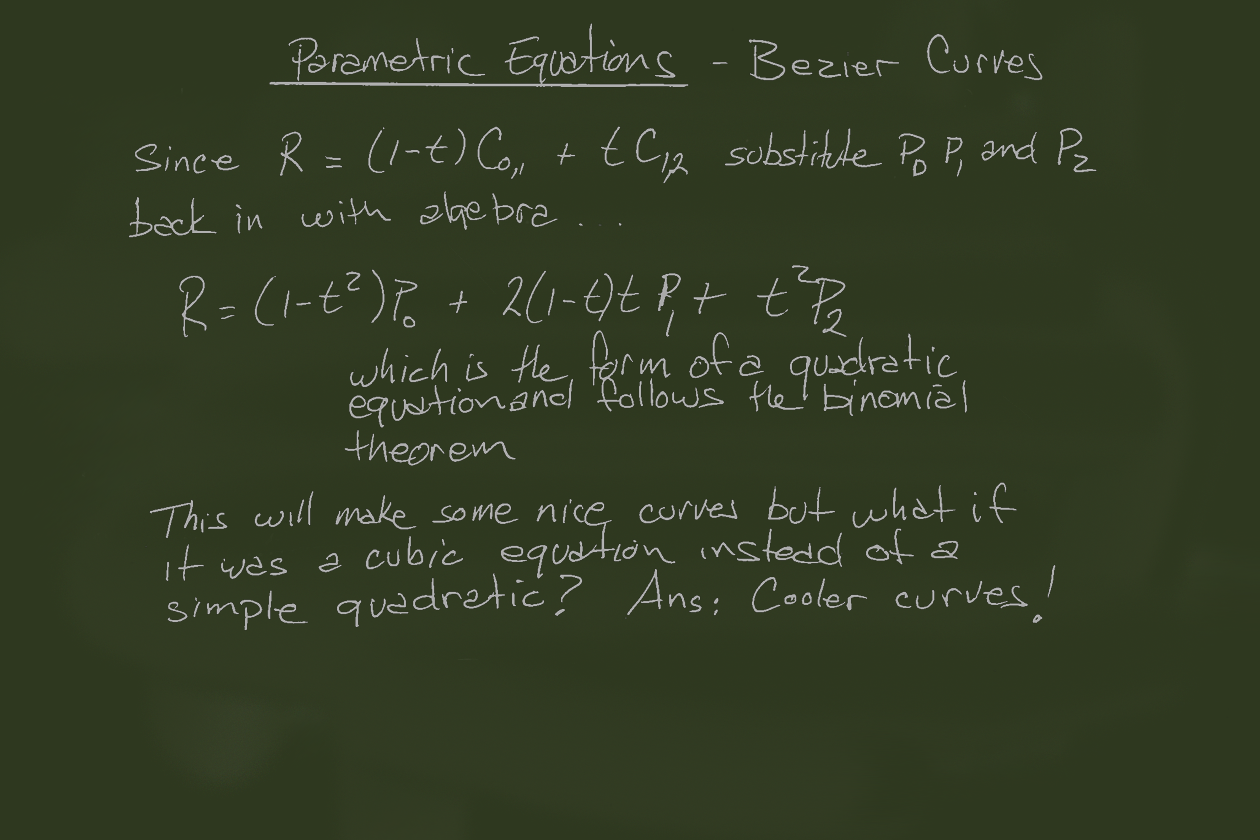 Parametric Equations - Bezier Curves
Since R = (1-t)C₀,₁ + tC₁,₂ substitute P₀ P₁ and P₂
back in with algebra ...
R = (1-t²)P₀ + 2(1-t)t P₁ + t²P₂
which is the form of a quadratic
equation and follows the binomial
theorem
This will make some nice curves but what if
it was a cubic equation instead of a
simple quadratic? Ans: Cooler curves!